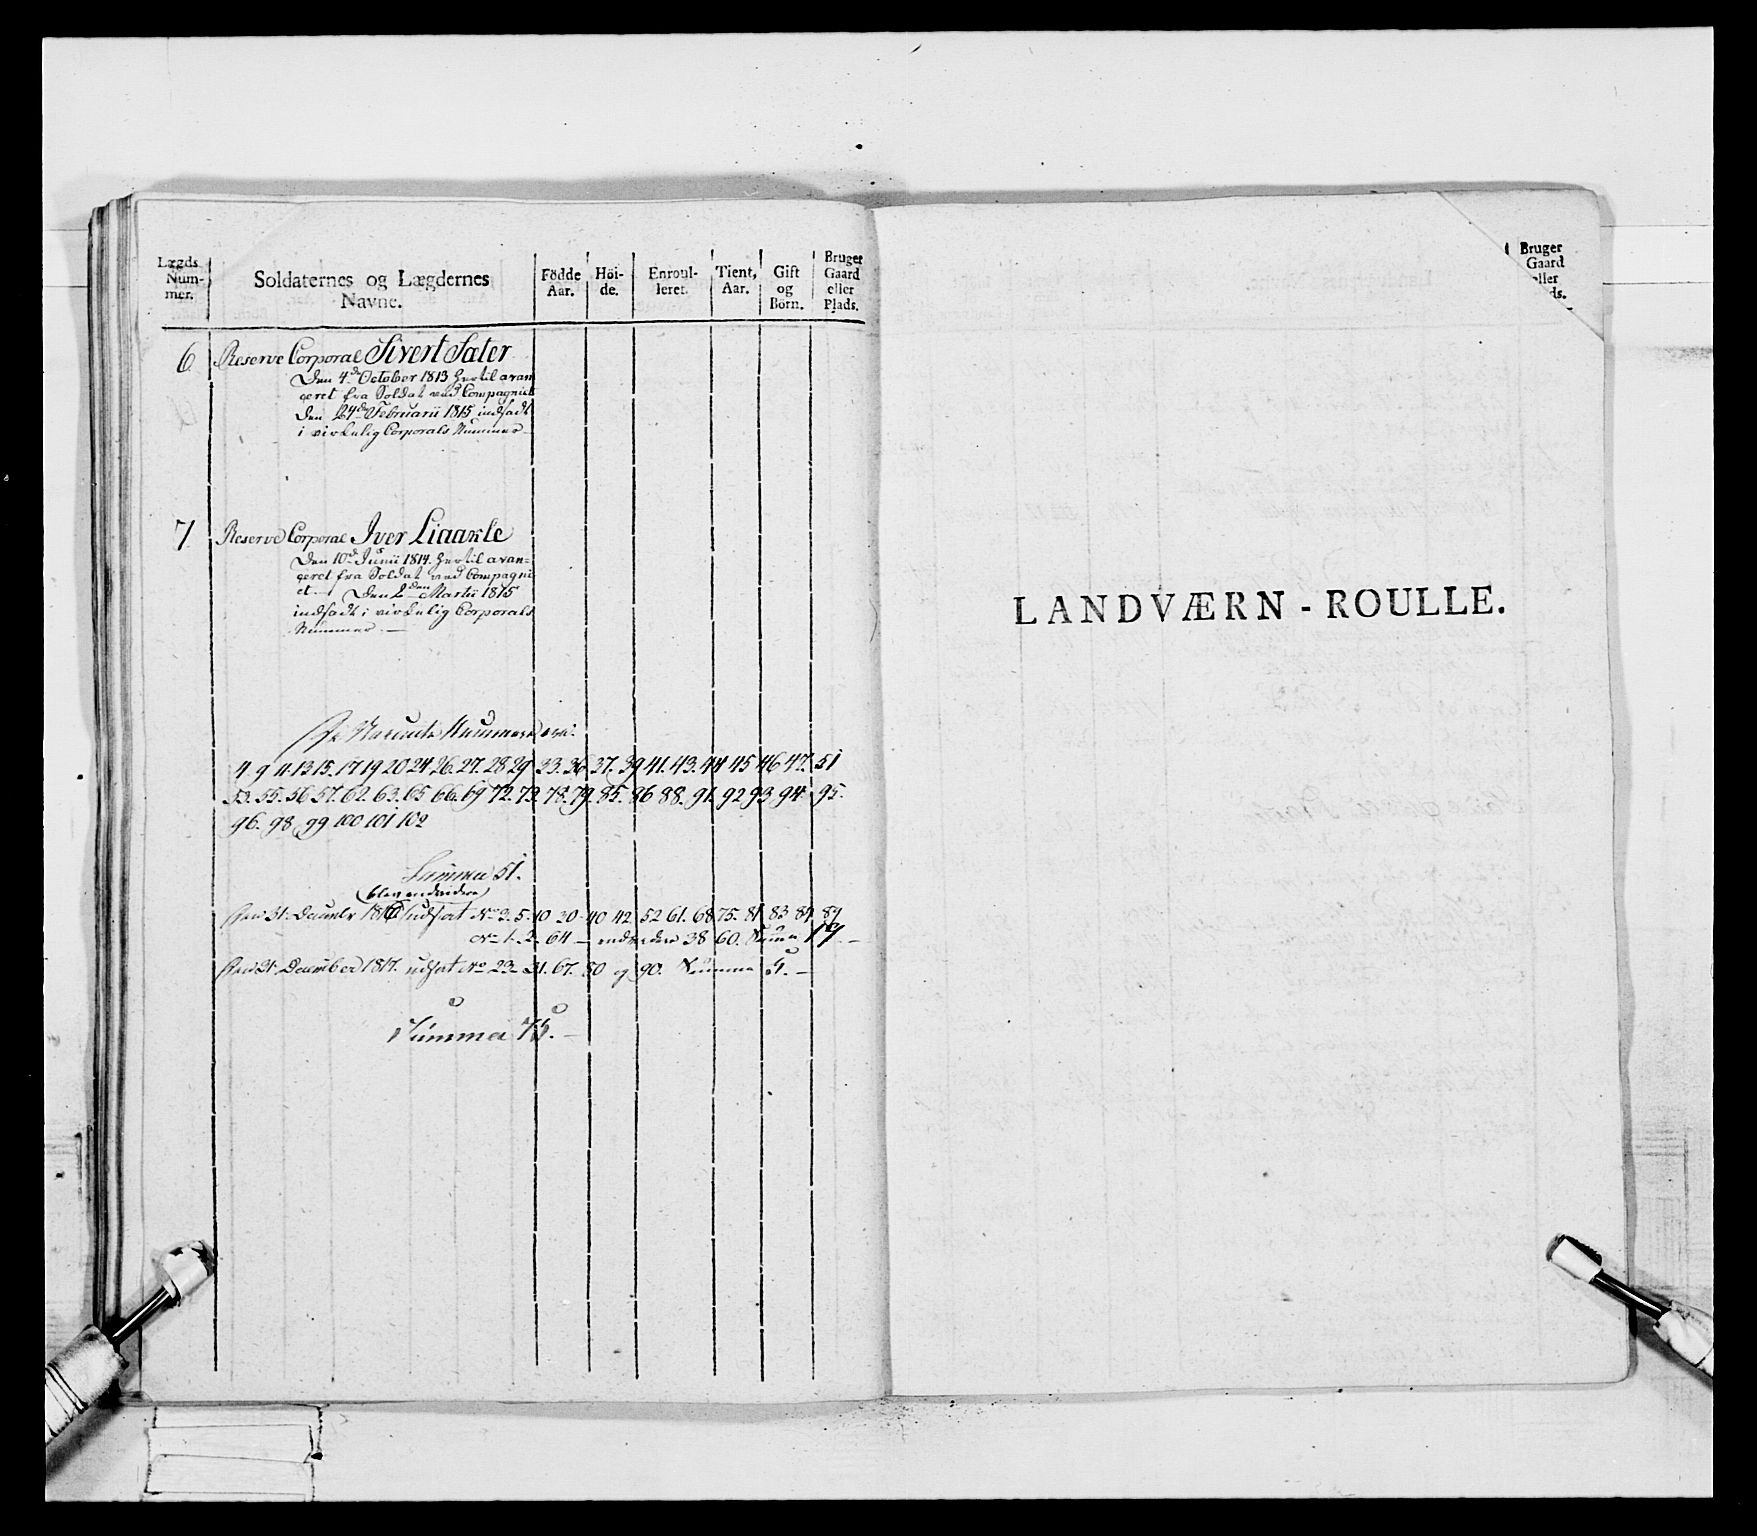 Lægds Num- mer.
Soldaternes og Lægdernes Navne.
Födde Aar.
Höi- de.
Enroul- leret.
Tient, Aar.
Gift og Börn.
Bruger Gaard eller Plads.
6 Reserve Corporal Sivert Sæter
Den 4d October 1813 hertil avan
ceret fra Soldat ved Compagniet
Den 24d Februarii 1815 indsadt
i virkelig Corporals Nummer
7 Reserve Corporal Iver Liaakle
Den 10d Junii 1814 hertil avan=
ceret fra Soldat ved Compagni
et. — Den 2den Martii 1815
indsadt i virkelig Corporals
Nummer —
De Vacante Nummere ere:
4. 9 11. 13 15. 17 19 20 24 26. 27. 28 29 33. 36 37. 39 41. 43. 44 45 46 47. 51
53. 55. 56 57. 62. 63. 65 66. 69 72. 73. 78. 79. 85. 86 88. 91. 92 93 94. 95.
96. 98 99 100 101 102
Summa 51.
blev endvidere
Den 31. Decembr 1816 udsat No 3. 5. 10 30 40 42. 52 61. 68 75. 81 83 84 89
No 1. 2. 64 — endvidere 38 60. Summa 19 —
Den 31. December 1817. udsat No 23 31. 67. 80 og 90. Summa 5. —
Summa 75. —
LANDVÆRN - ROULLE.
Bruger
Gaard
eller
ds.